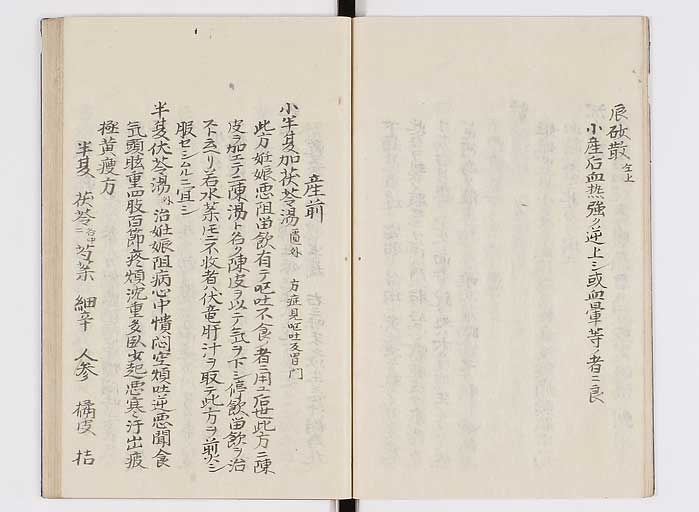 辰砂散 左上
小産后血熱強ク逆上シ或血暈等ノ者ニ良
産前
小半夏加茯苓湯 匱 外 方症見嘔吐及冒門
此方妊娠悪阻畄飲有テ嘔吐不食ノ者ニ用エ后世此方ニ陳
皮ヲ加エテ二陳湯ト名ク陳皮ヲ以テ気ヲ下シ停飲畄飲ヲ治
スト云ヘリ若水薬圧不收者ハ伏竜肝汁ヲ取テ此方ヲ煎シ
服セシムルニ宜シ
半夏伏苓湯 外 治妊娠阻病心中憒悶空煩吐逆悪聞食
気頭眩重四肢百節疼煩沈重多臥少起悪寒汗出疲
極黄瘦方
半夏 茯苓 芩薬 細辛 人参 橘皮 桔